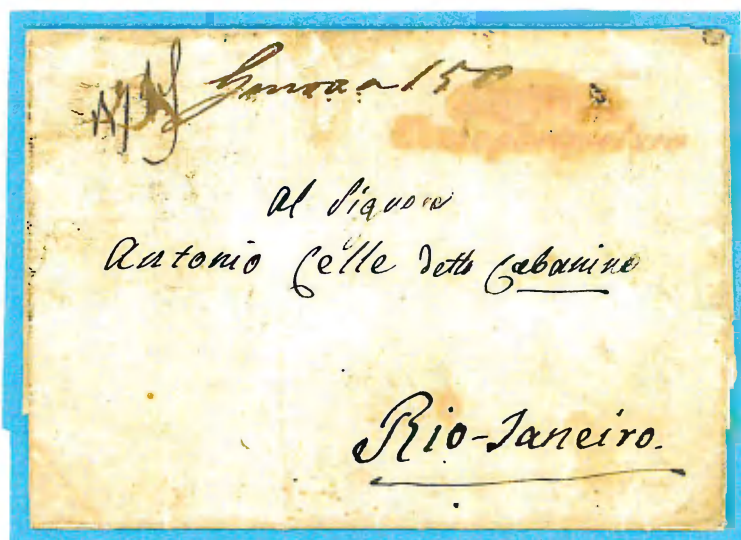 Genova 150
Al Signore
Antonio Celle detto Cabanino
Rio-Janeiro.